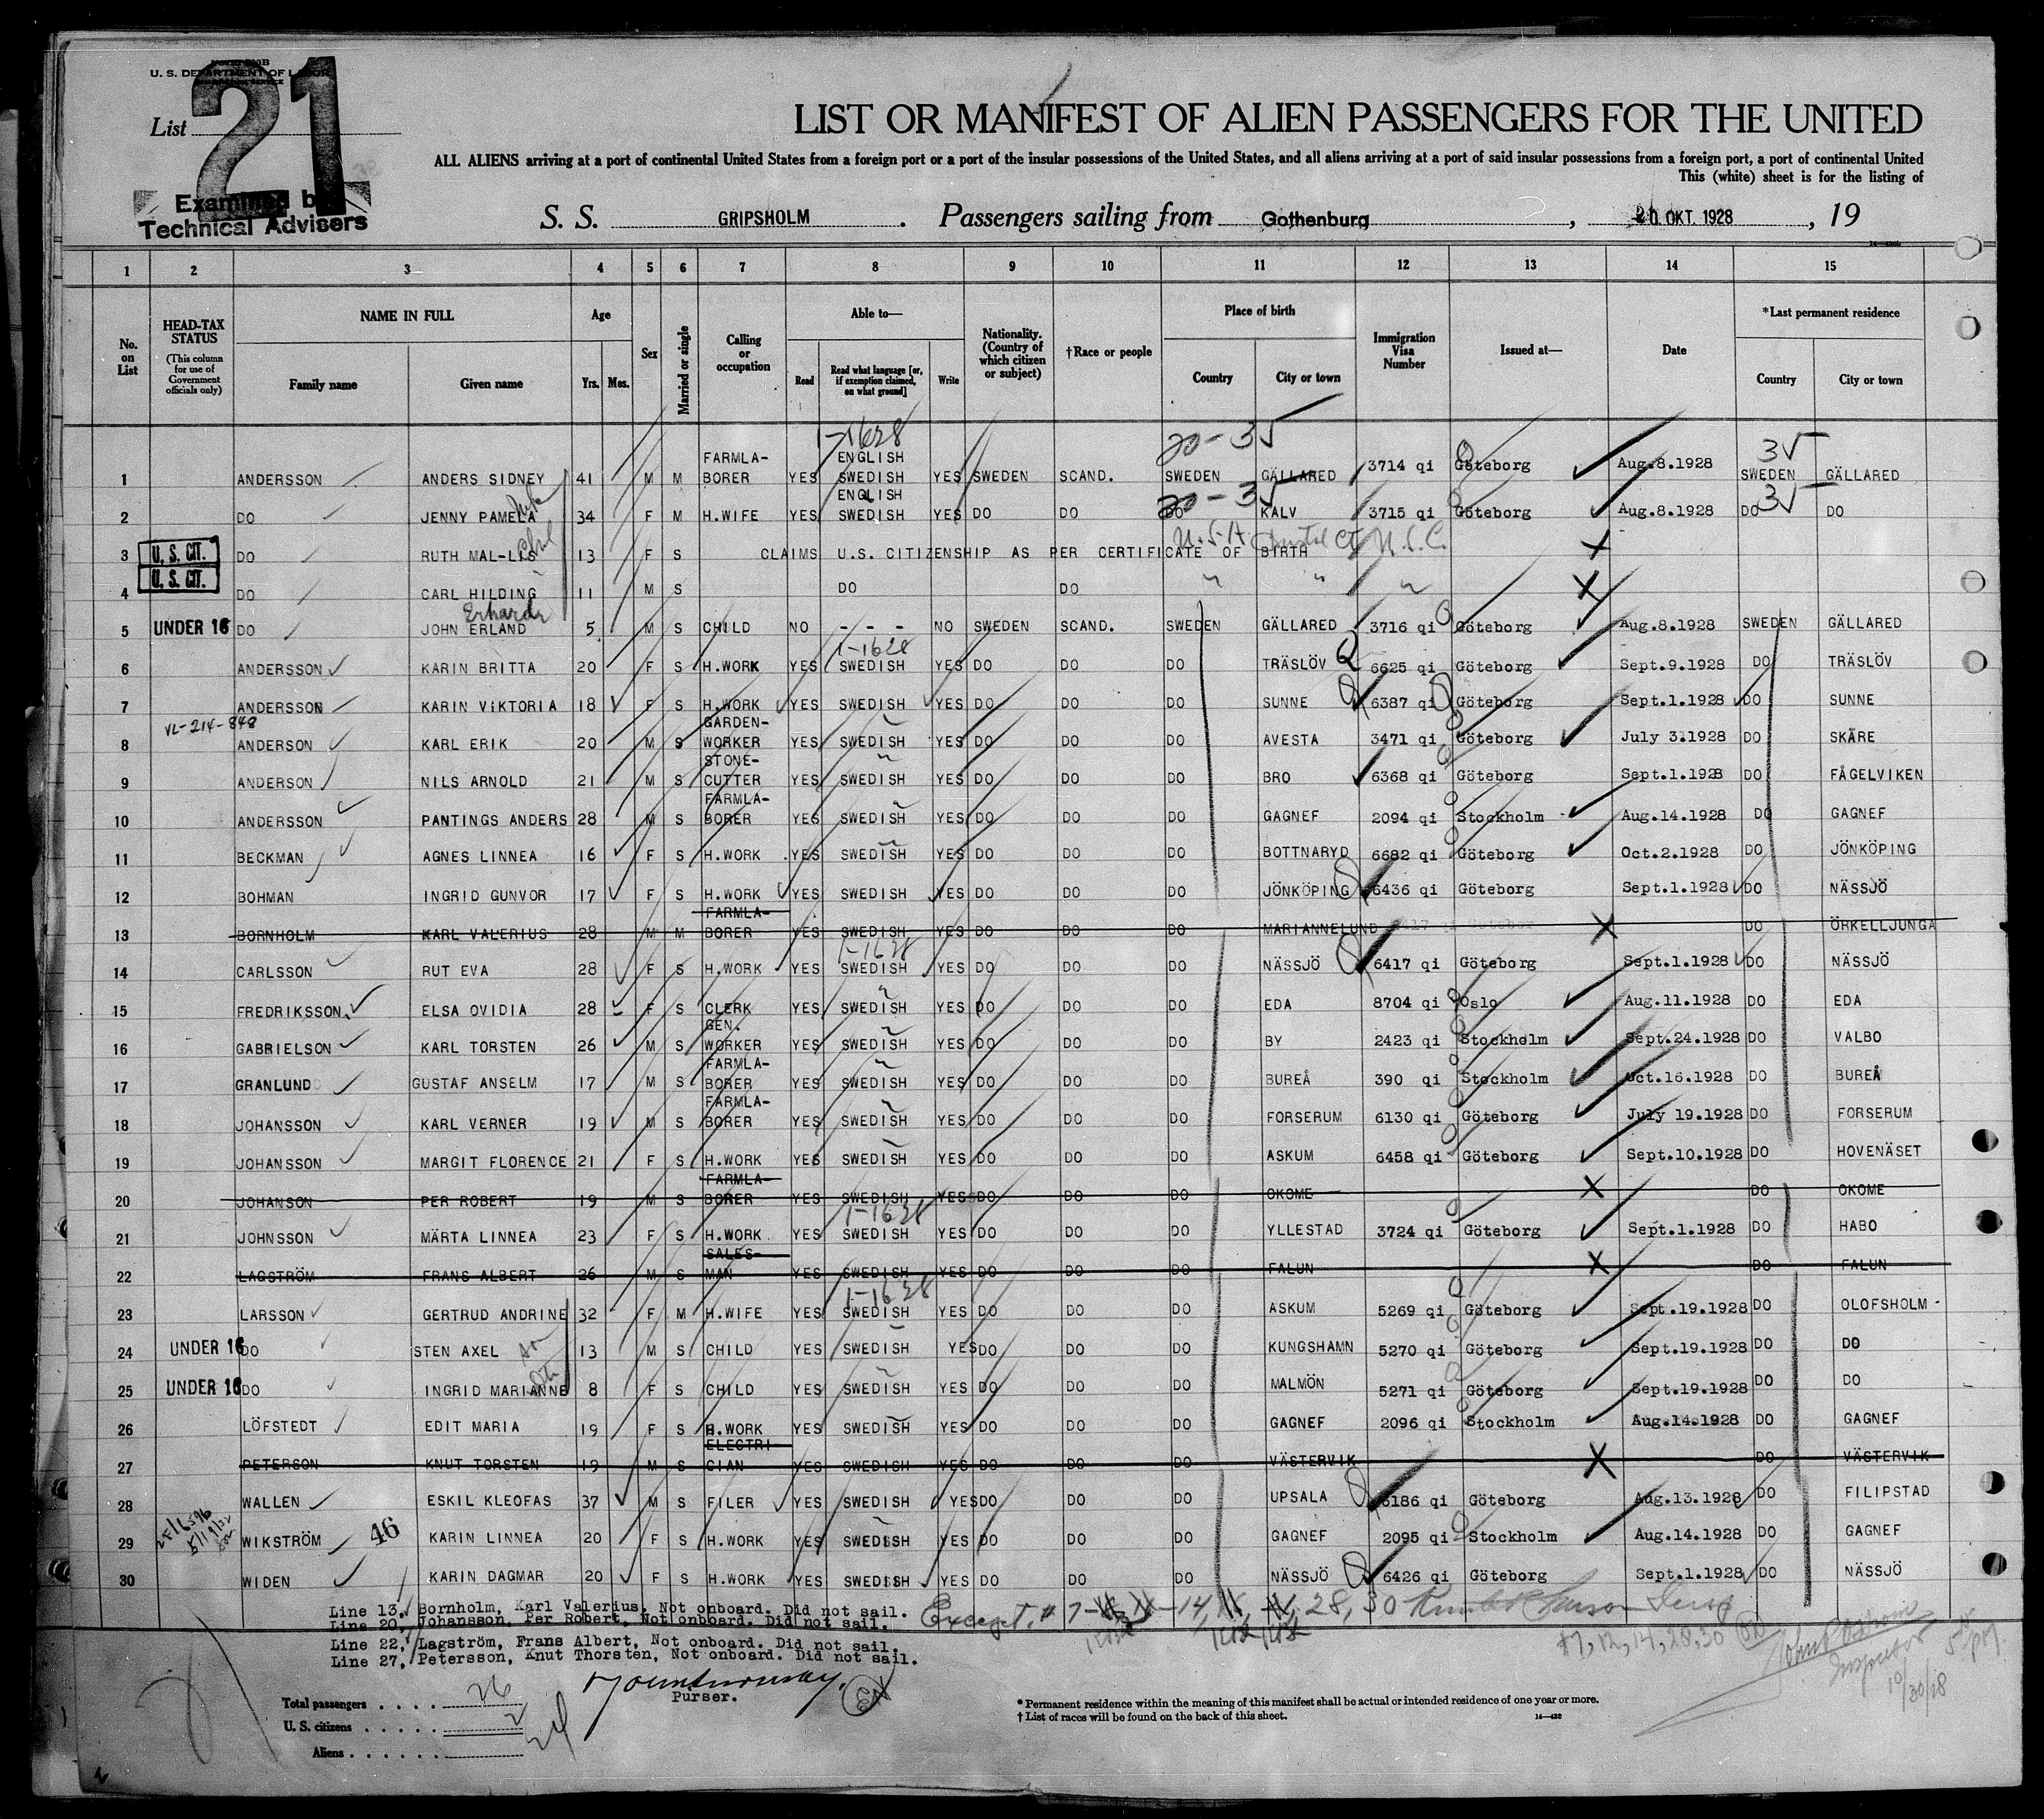 U. S. DEPARTMENT OF LABOR
List 21
Examined by
Technical Advisers
LIST OR MANIFEST OF ALIEN PASSENGERS FOR THE UNITED
ALL ALIENS arriving at a port of continental United States from a foreign port or a port of the insular possessions of the United States, and all aliens arriving at a port of said insular possessions from a foreign port, a port of continental United
This (white) sheet is for the listing of
S. S. GRIPSHOLM . Passengers sailing from Gothenburg , 20 OKT. 1928 , 19
1 2 3 4 5 6 7 8 9 10 11 12 13 14 15
No. on List
HEAD-TAX STATUS
(This column for use of Government officials only)
NAME IN FULL
Family name Given name
Age
Yrs. Mos.
Sex
Married or single
Calling or occupation
Able to—
Read
Read what language [or, if exemption claimed, on what ground]
Write
Nationality. (Country of which citizen or subject)
†Race or people
Place of birth
Country City or town
Immigration Visa Number
Issued at—
Date
*Last permanent residence
Country City or town
1-1628 20-3√ 3√
1 ANDERSSON ANDERS SIDNEY 41 M M FARMLA-BORER YES ENGLISH SWEDISH YES SWEDEN SCAND. SWEDEN GÄLLARED 3714 qi Göteborg Aug.8.1928 SWEDEN GÄLLARED
20-3√ 3√
2 DO JENNY PAMELA 34 F M H.WIFE YES ENGLISH SWEDISH YES DO DO DO KALV 3715 qi Göteborg Aug.8.1928 DO DO
U.S.A. Bristol Ct U.S.C.
3 U. S. CIT. DO RUTH MAL-LIS 13 F S CLAIMS U.S. CITIZENSHIP AS PER CERTIFICATE OF BIRTH X
4 U. S. CIT. DO CARL HILDING 11 M S DO DO " " " X
Erhard
5 UNDER 16 DO JOHN ERLAND 5 M S CHILD NO - - - NO SWEDEN SCAND. SWEDEN GÄLLARED 3716 qi Göteborg Aug.8.1928 SWEDEN GÄLLARED
1-1628
6 ANDERSSON KARIN BRITTA 20 F S H.WORK YES SWEDISH YES DO DO DO TRÄSLÖV 6625 qi Göteborg Sept.9.1928 DO TRÄSLÖV
7 ANDERSSON KARIN VIKTORIA 18 F S H.WORK YES SWEDISH YES DO DO DO SUNNE 6387 qi Göteborg Sept.1.1928 DO SUNNE
VL-214-848
8 ANDERSON KARL ERIK 20 M S GARDEN-WORKER YES SWEDISH YES DO DO DO AVESTA 3471 qi Göteborg July 31.1928 DO SKÅRE
9 ANDERSON NILS ARNOLD 21 M S STONE-CUTTER YES SWEDISH YES DO DO DO BRO 6368 qi Göteborg Sept.1.1928 DO FÅGELVIKEN
10 ANDERSSON PANTINGS ANDERS 28 M S FARMLA-BORER YES SWEDISH YES DO DO DO GAGNEF 2094 qi Stockholm Aug.14.1928 DO GAGNEF
11 BECKMAN AGNES LINNEA 16 F S H.WORK YES SWEDISH YES DO DO DO BOTTNARYD 6682 qi Göteborg Oct.2.1928 DO JÖNKÖPING
12 BOHMAN INGRID GUNVOR 17 F S H.WORK YES SWEDISH YES DO DO DO JÖNKÖPING 6436 qi Göteborg Sept.1.1928 DO NÄSSJÖ
13 BORNHOLM KARL VALERIUS 28 M M FARMLA-BORER YES SWEDISH YES DO DO DO MARIANNELUND X DO ÖRKELLJUNGA
1-1628
14 CARLSSON RUT EVA 28 F S H.WORK YES SWEDISH YES DO DO DO NÄSSJÖ 6417 qi Göteborg Sept.1.1928 DO NÄSSJÖ
15 FREDRIKSSON ELSA OVIDIA 28 F S CLERK YES SWEDISH YES DO DO DO EDA 8704 qi Oslo Aug.11.1928 DO EDA
16 GABRIELSON KARL TORSTEN 26 M S GEN. WORKER YES SWEDISH YES DO DO DO BY 2423 qi Stockholm Sept.24.1928 DO VALBO
17 GRANLUND GUSTAF ANSELM 17 M S FARMLA-BORER YES SWEDISH YES DO DO DO BUREÅ 390 qi Stockholm Oct.16.1928 DO BUREÅ
18 JOHANSSON KARL VERNER 19 M S FARMLA-BORER YES SWEDISH YES DO DO DO FORSERUM 6130 qi Göteborg July 19.1928 DO FORSERUM
19 JOHANSSON MARGIT FLORENCE 21 F S H.WORK YES SWEDISH YES DO DO DO ASKUM 6458 qi Göteborg Sept.10.1928 DO HOVENÄSET
20 JOHANSON PER ROBERT 19 M S FARMLA-BORER YES SWEDISH YES DO DO DO OKOME X DO OKOME
1-1628
21 JOHNSSON MÄRTA LINNEA 23 F S H.WORK YES SWEDISH YES DO DO DO YLLESTAD 3724 qi Göteborg Sept.1.1928 DO HABO
22 LAGSTRÖM FRANS ALBERT 26 M S SALES-MAN YES SWEDISH YES DO DO DO FALUN X DO FALUN
1-1628
23 LARSSON GERTRUD ANDRINE 32 F M H.WIFE YES SWEDISH YES DO DO DO ASKUM 5269 qi Göteborg Sept.19.1928 DO OLOFSHOLM
24 UNDER 16 DO STEN AXEL 13 M S CHILD YES SWEDISH YES DO DO DO KUNGSHAMN 5270 qi Göteborg Sept.19.1928 DO DO
25 UNDER 16 DO INGRID MARIANNE 8 F S CHILD YES SWEDISH YES DO DO DO MALMÖN 5271 qi Göteborg Sept.19.1928 DO DO
26 LÖFSTEDT EDIT MARIA 19 F S H.WORK YES SWEDISH YES DO DO DO GAGNEF 2096 qi Stockholm Aug.14.1928 DO GAGNEF
27 PETERSON KNUT TORSTEN 19 M S ELECTRI-CIAN YES SWEDISH YES DO DO DO VÄSTERVIK X DO VÄSTERVIK
28 WALLEN ESKIL KLEOFAS 37 M S FILER YES SWEDISH YES DO DO DO UPSALA 6186 qi Göteborg Aug.13.1928 DO FILIPSTAD
29 WIKSTRÖM 46 KARIN LINNEA 20 F S H.WORK YES SWEDISH YES DO DO DO GAGNEF 2095 qi Stockholm Aug.14.1928 DO GAGNEF
30 WIDEN KARIN DAGMAR 20 F S H.WORK YES SWEDISH YES DO DO DO NÄSSJÖ 6426 qi Göteborg Sept.1.1928 DO NÄSSJÖ
Line 13, Bornholm, Karl Valerius, Not onboard. Did not sail.
Line 20, Johansson, Per Robert, Not onboard. Did not sail.
Line 22, Lagström, Frans Albert, Not onboard. Did not sail.
Line 27, Petersson, Knut Thorsten, Not onboard. Did not sail.
Except # 7 - 14, 28, 30
#7, 12, 14, 28, 30
Inspector
10/30/28
Purser.
Total passengers . . . . 26
U. S. citizens . . . . . 2
Aliens . . . . . . 24
* Permanent residence within the meaning of this manifest shall be actual or intended residence of one year or more.
† List of races will be found on the back of this sheet.